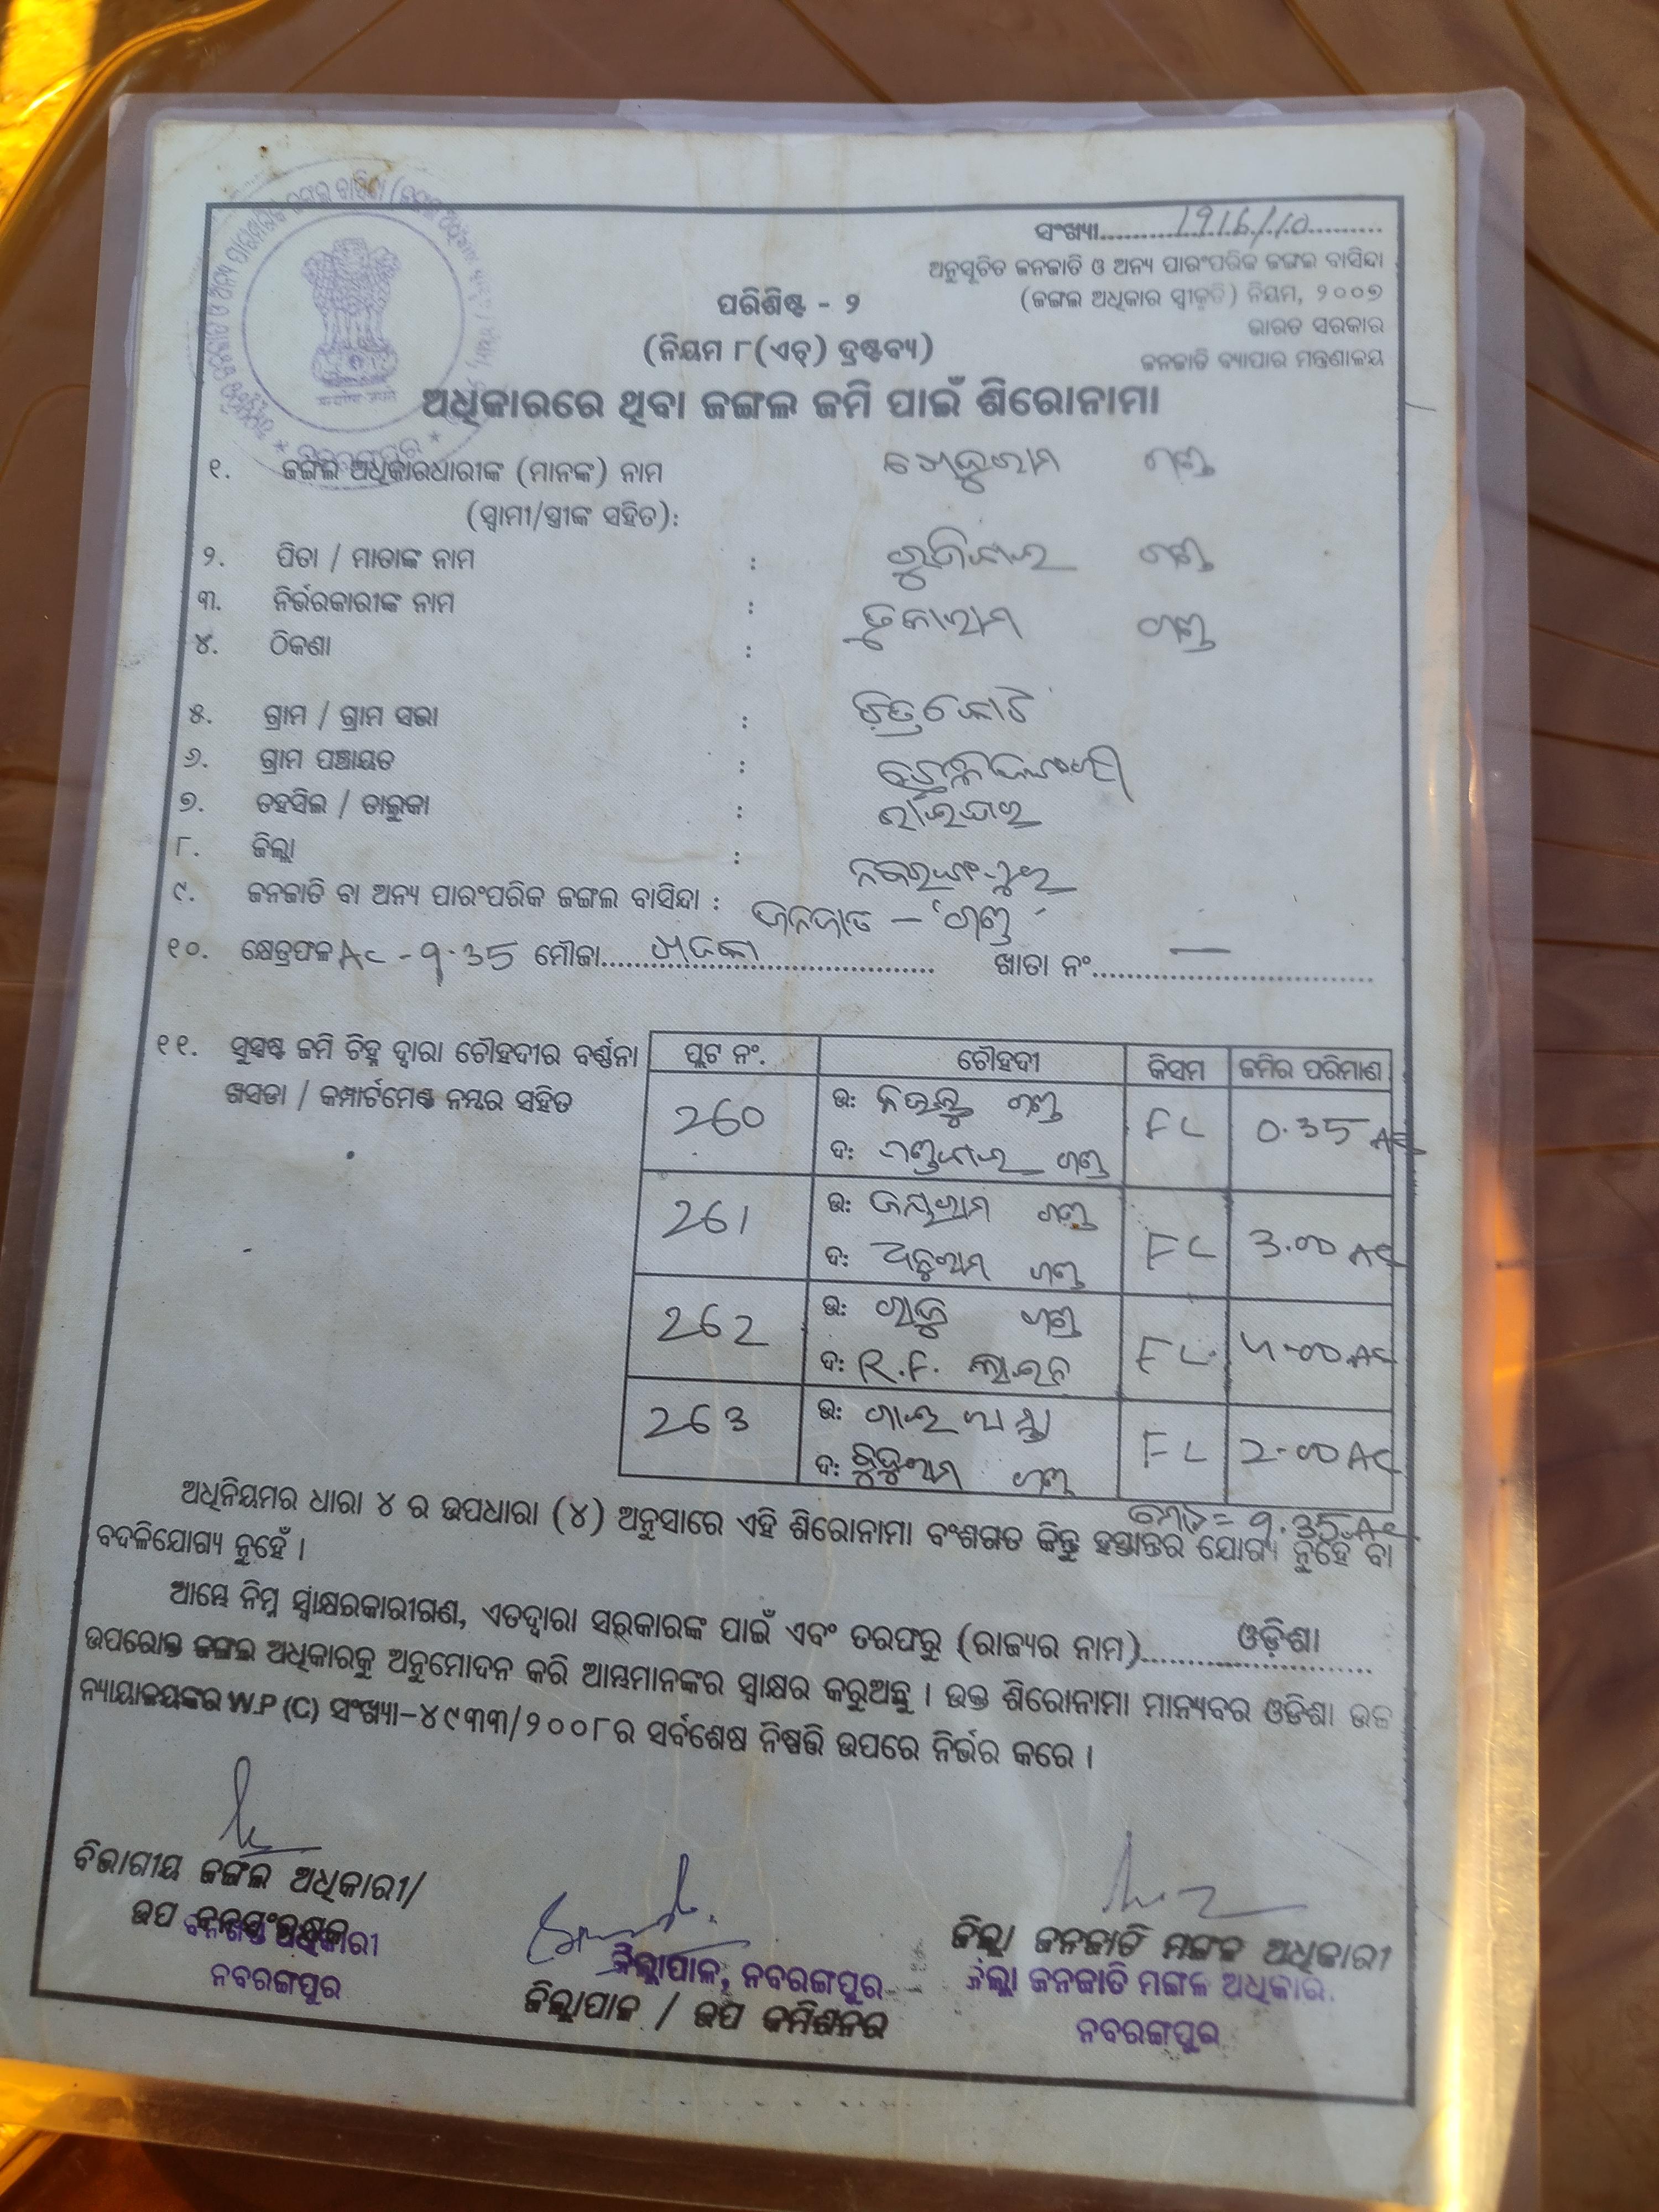 ସଂଖ୍ୟା..........1916/10..........
ଅନୁସୂଚିତ ଜନଜାତି ଓ ଅନ୍ୟ ପାରଂପରିକ ଜଙ୍ଗଲ ବାସିନ୍ଦା
(ଜଙ୍ଗଲ ଅଧିକାର ସ୍ୱୀକୃତି) ନିୟମ, ୨୦୦୭
ଭାରତ ସରକାର
ଜନଜାତି ବ୍ୟାପାର ମନ୍ତ୍ରଣାଳୟ
ପରିଶିଷ୍ଟ - ୨
(ନିୟମ ୮(ଏଚ୍) ଦ୍ରଷ୍ଟବ୍ୟ)
ଅଧିକାରରେ ଥିବା ଜଙ୍ଗଲ ଜମି ପାଇଁ ଶିରୋନାମା
୧. ଜଙ୍ଗଲ ଅଧିକାରଧାରୀଙ୍କ (ମାନଙ୍କ) ନାମ ଗଣ୍ଡ
(ସ୍ୱାମୀ/ସ୍ତ୍ରୀଙ୍କ ସହିତ):
୨. ପିତା / ମାତାଙ୍କ ନାମ : ଗଣ୍ଡ
୩. ନିର୍ଭରକାରୀଙ୍କ ନାମ : ତୁକାରାମ ଗଣ୍ଡ
୪. ଠିକଣା :
୫. ଗ୍ରାମ / ଗ୍ରାମ ସଭା : ଚିତ୍ରକୋଟ
୬. ଗ୍ରାମ ପଞ୍ଚାୟତ :
୭. ତହସିଲ / ତାଲୁକା : ରାଇଘର
୮. ଜିଲ୍ଲା : ନବରଙ୍ଗପୁର
୯. ଜନଜାତି ବା ଅନ୍ୟ ପାରଂପରିକ ଜଙ୍ଗଲ ବାସିନ୍ଦା : ଜନଜାତି – 'ଗଣ୍ଡ'
୧୦. କ୍ଷେତ୍ରଫଳ AC - 9.35 ମୌଜା.......... ଖାତା ନଂ..........—
୧୧. ସୁସ୍ପଷ୍ଟ ଜମି ଚିହ୍ନ ଦ୍ୱାରା ଚୌହଦୀର ବର୍ଣ୍ଣନା
ଖସଡା / କମ୍ପାର୍ଟମେଣ୍ଟ ନମ୍ବର ସହିତ
ପ୍ଲଟ ନଂ. ଚୌହଦୀ କିସମ ଜମିର ପରିମାଣ
260 ଉ: ଗଣ୍ଡ FL 0.35 AC
ଦ: ଗଣ୍ଡ
261 ଉ: ଜୟରାମ ଗଣ୍ଡ FL 3.00 AC
ଦ: ଗଣ୍ଡ
262 ଉ: ଗଣ୍ଡ FL 4.00 AC
ଦ: R.F. ଲାଇନ
263 ଉ: FL 2.00 AC
ଦ: ଗଣ୍ଡ
ମୋଟ = 9.35 AC
ଅଧିନିୟମର ଧାରା ୪ ର ଉପଧାରା (୪) ଅନୁସାରେ ଏହି ଶିରୋନାମା ବଂଶଗତ କିନ୍ତୁ ହସ୍ତାନ୍ତର ଯୋଗ୍ୟ ନୁହେଁ ବା
ବଦଳିଯୋଗ୍ୟ ନୁହେଁ ।
ଆମ୍ଭେ ନିମ୍ନ ସ୍ୱାକ୍ଷରକାରୀଗଣ, ଏତଦ୍ୱାରା ସର୍କାରଙ୍କ ପାଇଁ ଏବଂ ତରଫରୁ (ରାଜ୍ୟର ନାମ)..........ଓଡ଼ିଶା..........
ଉପରୋକ୍ତ ଜଙ୍ଗଲ ଅଧିକାରକୁ ଅନୁମୋଦନ କରି ଆମ୍ଭମାନଙ୍କର ସ୍ୱାକ୍ଷର କରୁଅଛୁ । ଉକ୍ତ ଶିରୋନାମା ମାନ୍ୟବର ଓଡିଶା ଉଚ୍ଚ
ନ୍ୟାୟାଳୟଙ୍କର W.P (C) ସଂଖ୍ୟା-୪୯୩୩/୨୦୦୮ର ସର୍ବଶେଷ ନିଷ୍ପତ୍ତି ଉପରେ ନିର୍ଭର କରେ ।
ବିଭାଗୀୟ ଜଙ୍ଗଲ ଅଧିକାରୀ/
ଉପ ବନସଂରକ୍ଷକ
ନବରଙ୍ଗପୁର
ଜିଲ୍ଲାପାଳ, ନବରଙ୍ଗପୁର
ଜିଲ୍ଲାପାଳ / ଉପ କମିଶନର
ଜିଲ୍ଲା ଜନଜାତି ମଙ୍ଗଳ ଅଧିକାରୀ
ଜିଲ୍ଲା ଜନଜାତି ମଙ୍ଗଳ ଅଧିକାରୀ
ନବରଙ୍ଗପୁର